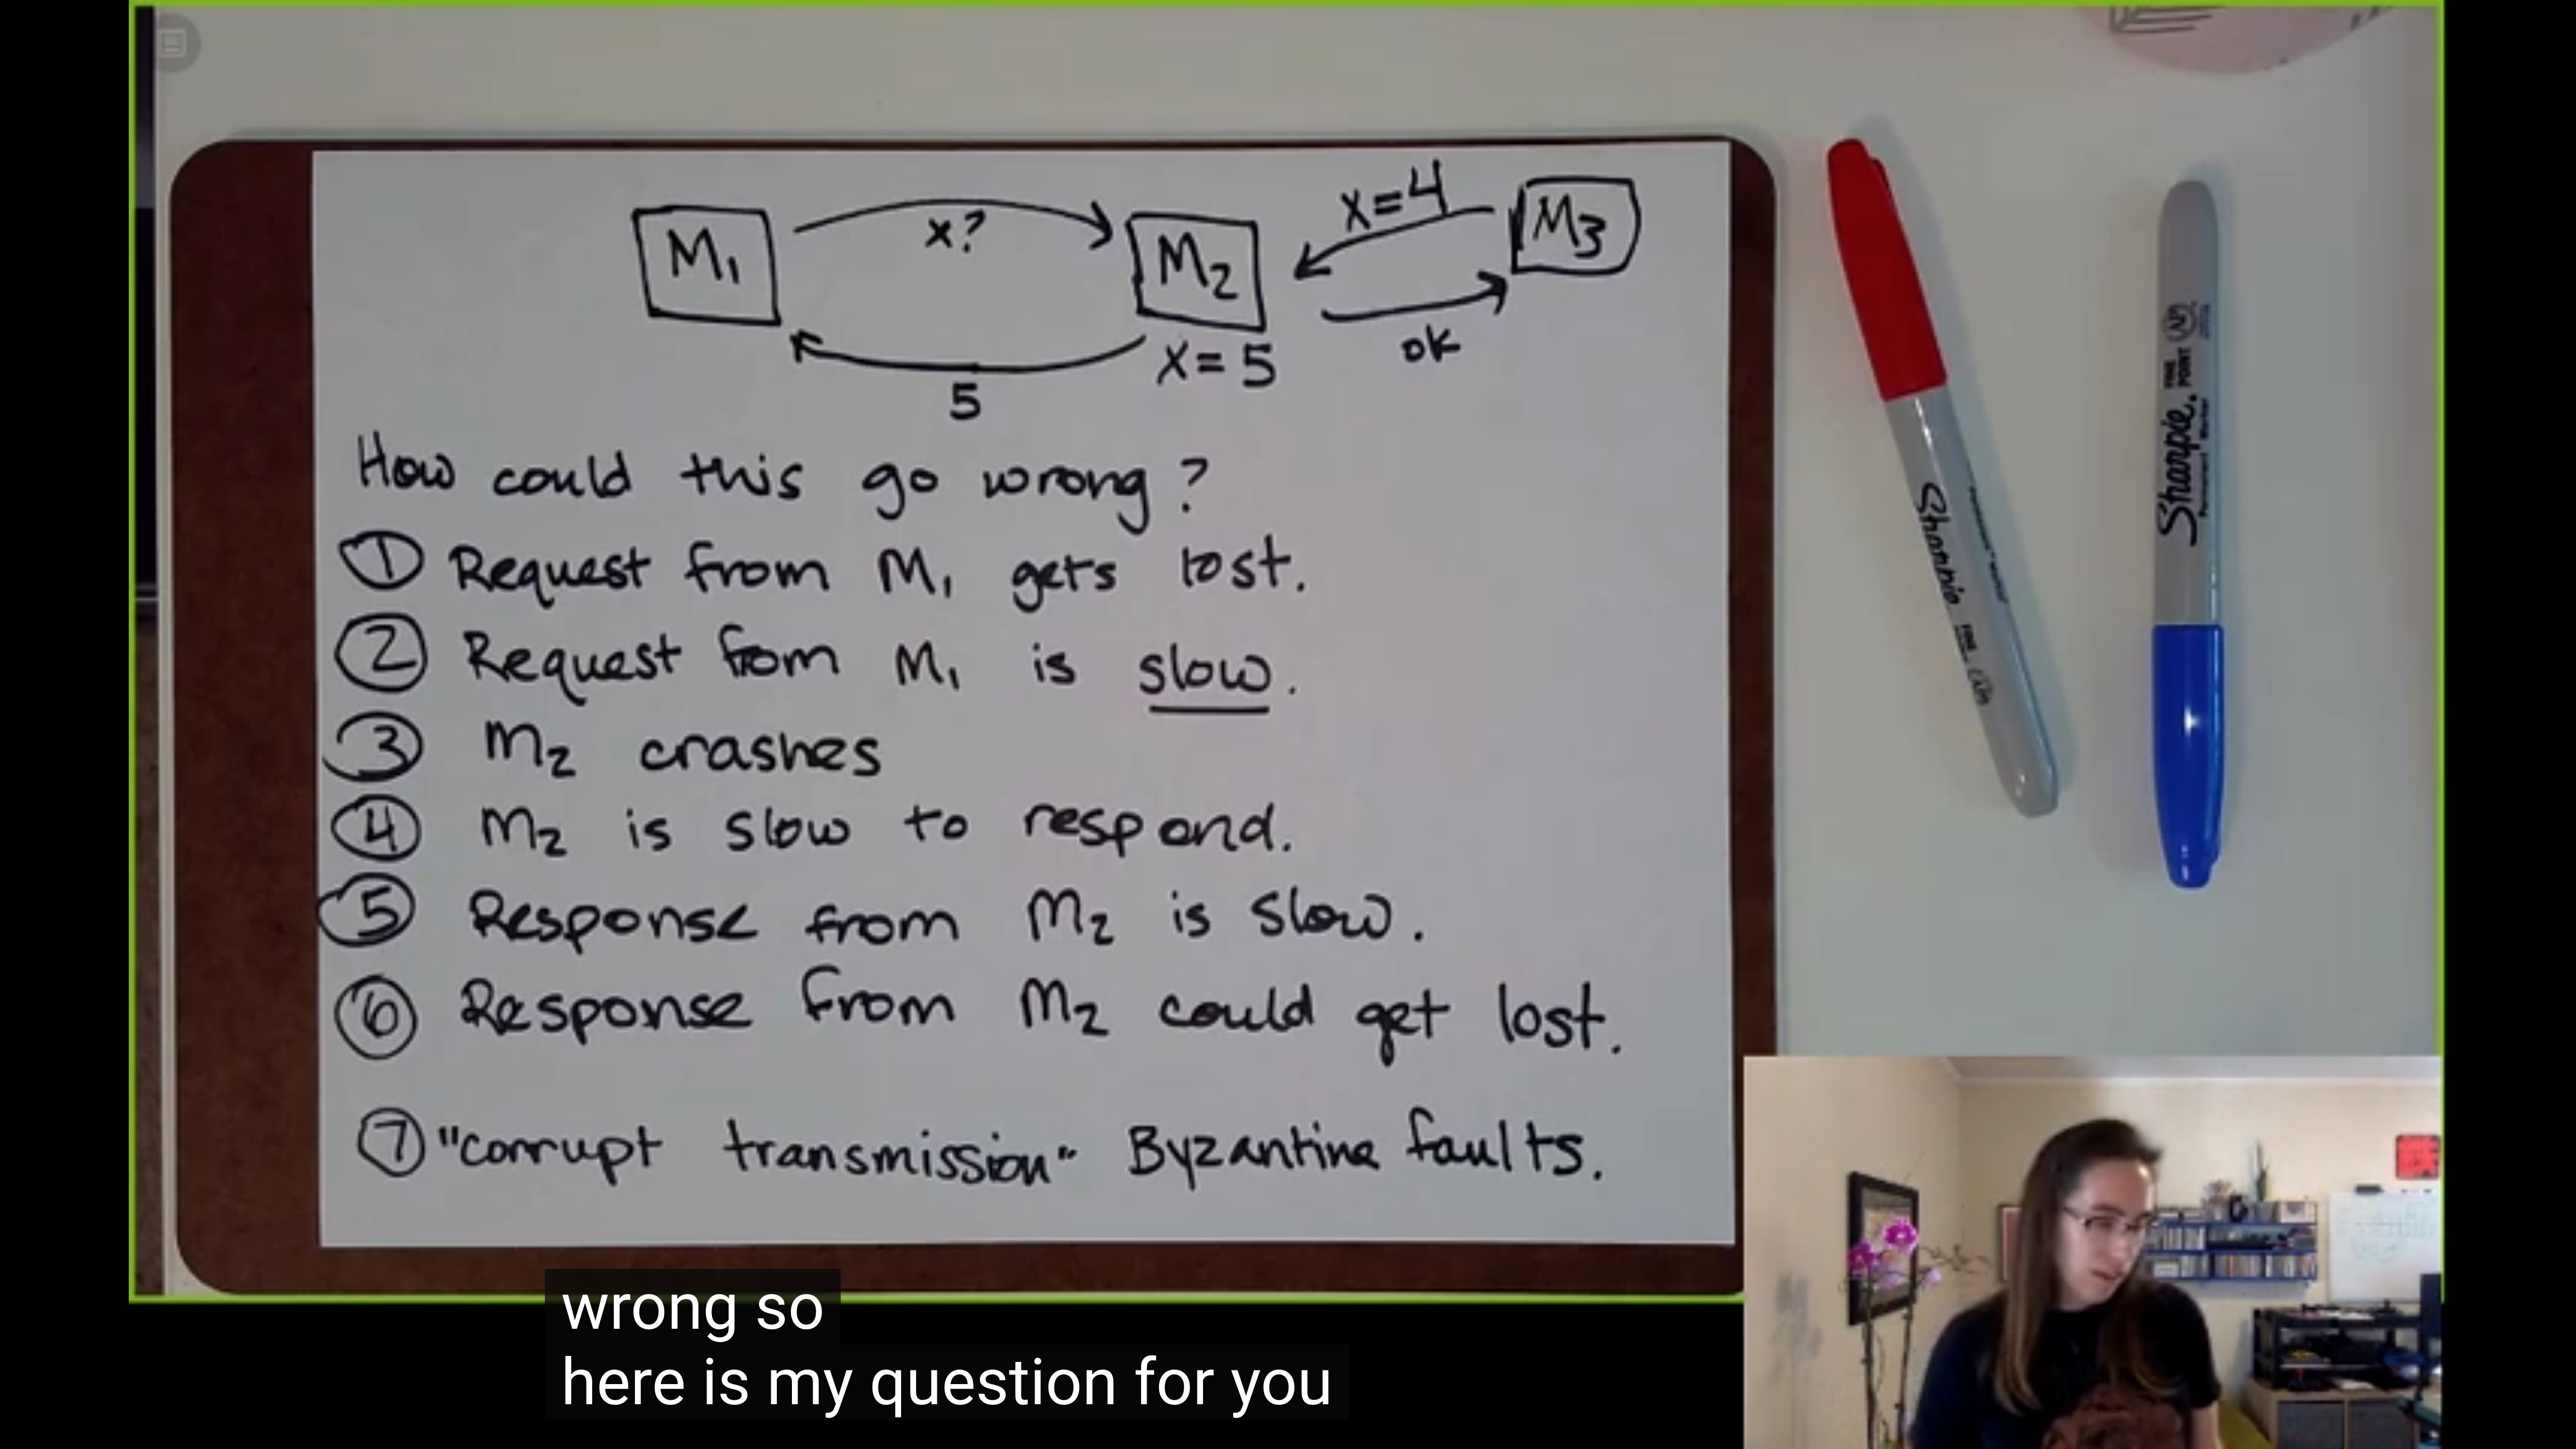 M₁
x?
M₂
x=4
M₃
5
x=5
ok
How could this go wrong?
① Request from M₁ gets lost.
② Request from M₁ is slow.
③ M₂ crashes
④ M₂ is slow to respond.
⑤ Response from M₂ is slow.
⑥ Response from M₂ could get lost.
⑦ "corrupt transmission" Byzantine faults.
Sharpie
FINE
Sharpie.
FINE POINT
Permanent Marker
wrong so
here is my question for you